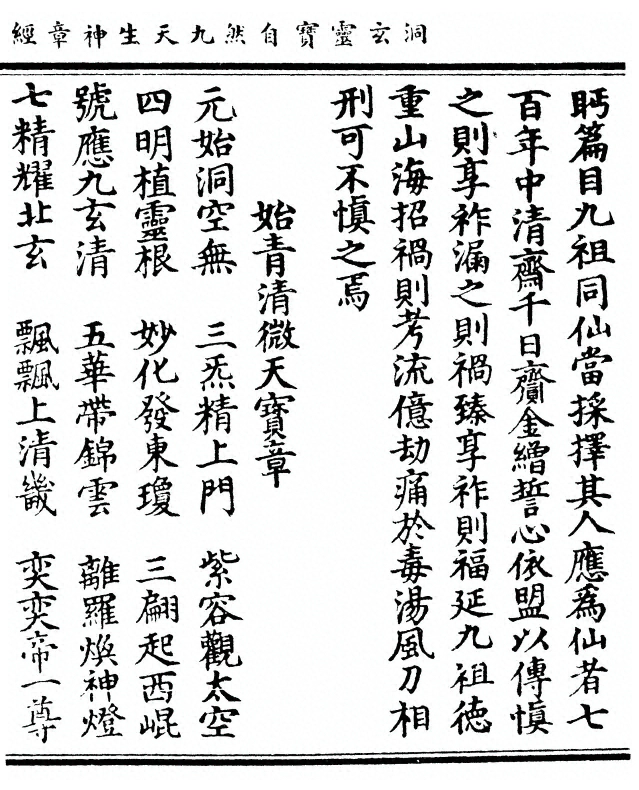 洞玄靈寶自然九天生神章經
眄篇目九祖同仙當採擇其人應爲仙者七
百年中清齋千日齎金繒誓心依盟以傳慎
之則享祚漏之則禍臻享祚則福延九祖德
重山海招禍則考流億劫痛於毒湯風刀相
刑可不慎之焉
始青清微天寶章
元始洞空無　三炁精上門　紫容觀太空
四明植靈根　妙化發東瓊　三翩起西崐
號應九玄清　五華帶錦雲　離羅煥神燈
七精耀北玄　飄飄上清畿　奕奕帝一尊